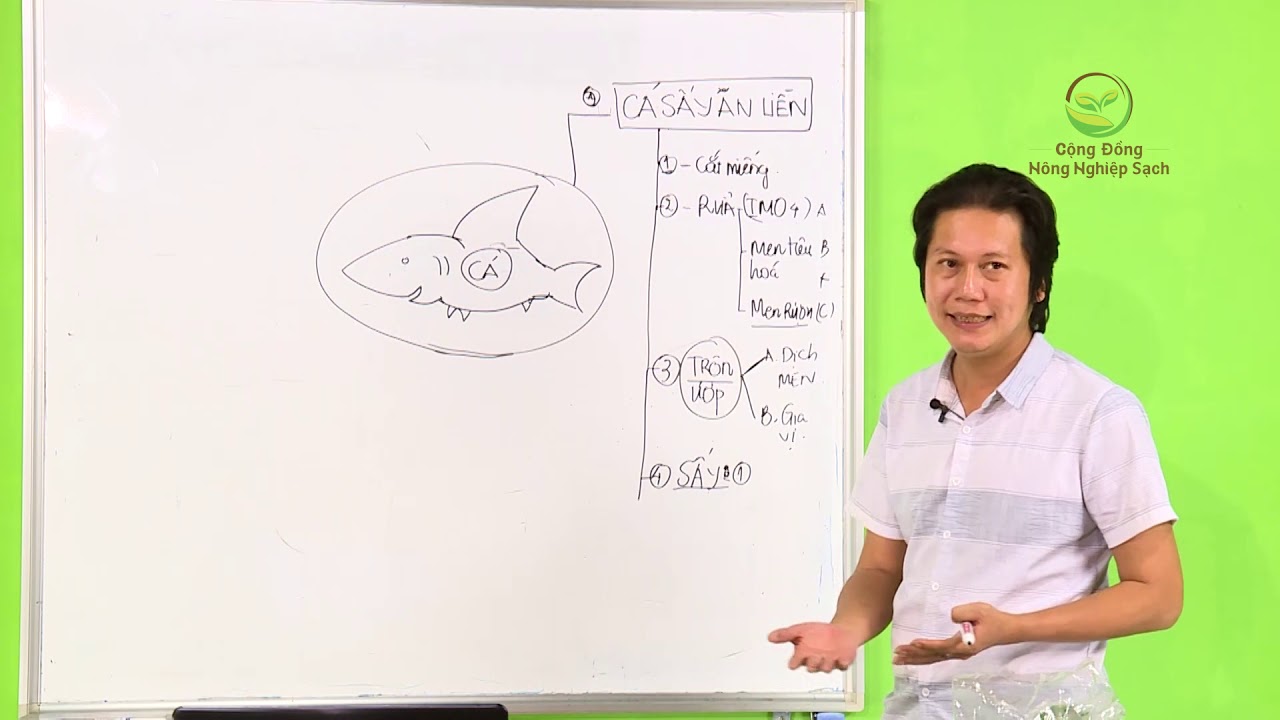 A
CÁ SẤY ĂN LIỀN
1 - Cắt miếng.
2 - RỬA (IMO4) A
Men tiêu B
hoá
+
Men Rượu (C)
3 TRỘN
ƯỚP
A. Dịch
MEN
B. Gia
vị.
4 SẤY 1
CÁ
Cộng Đồng
Nông Nghiệp Sạch